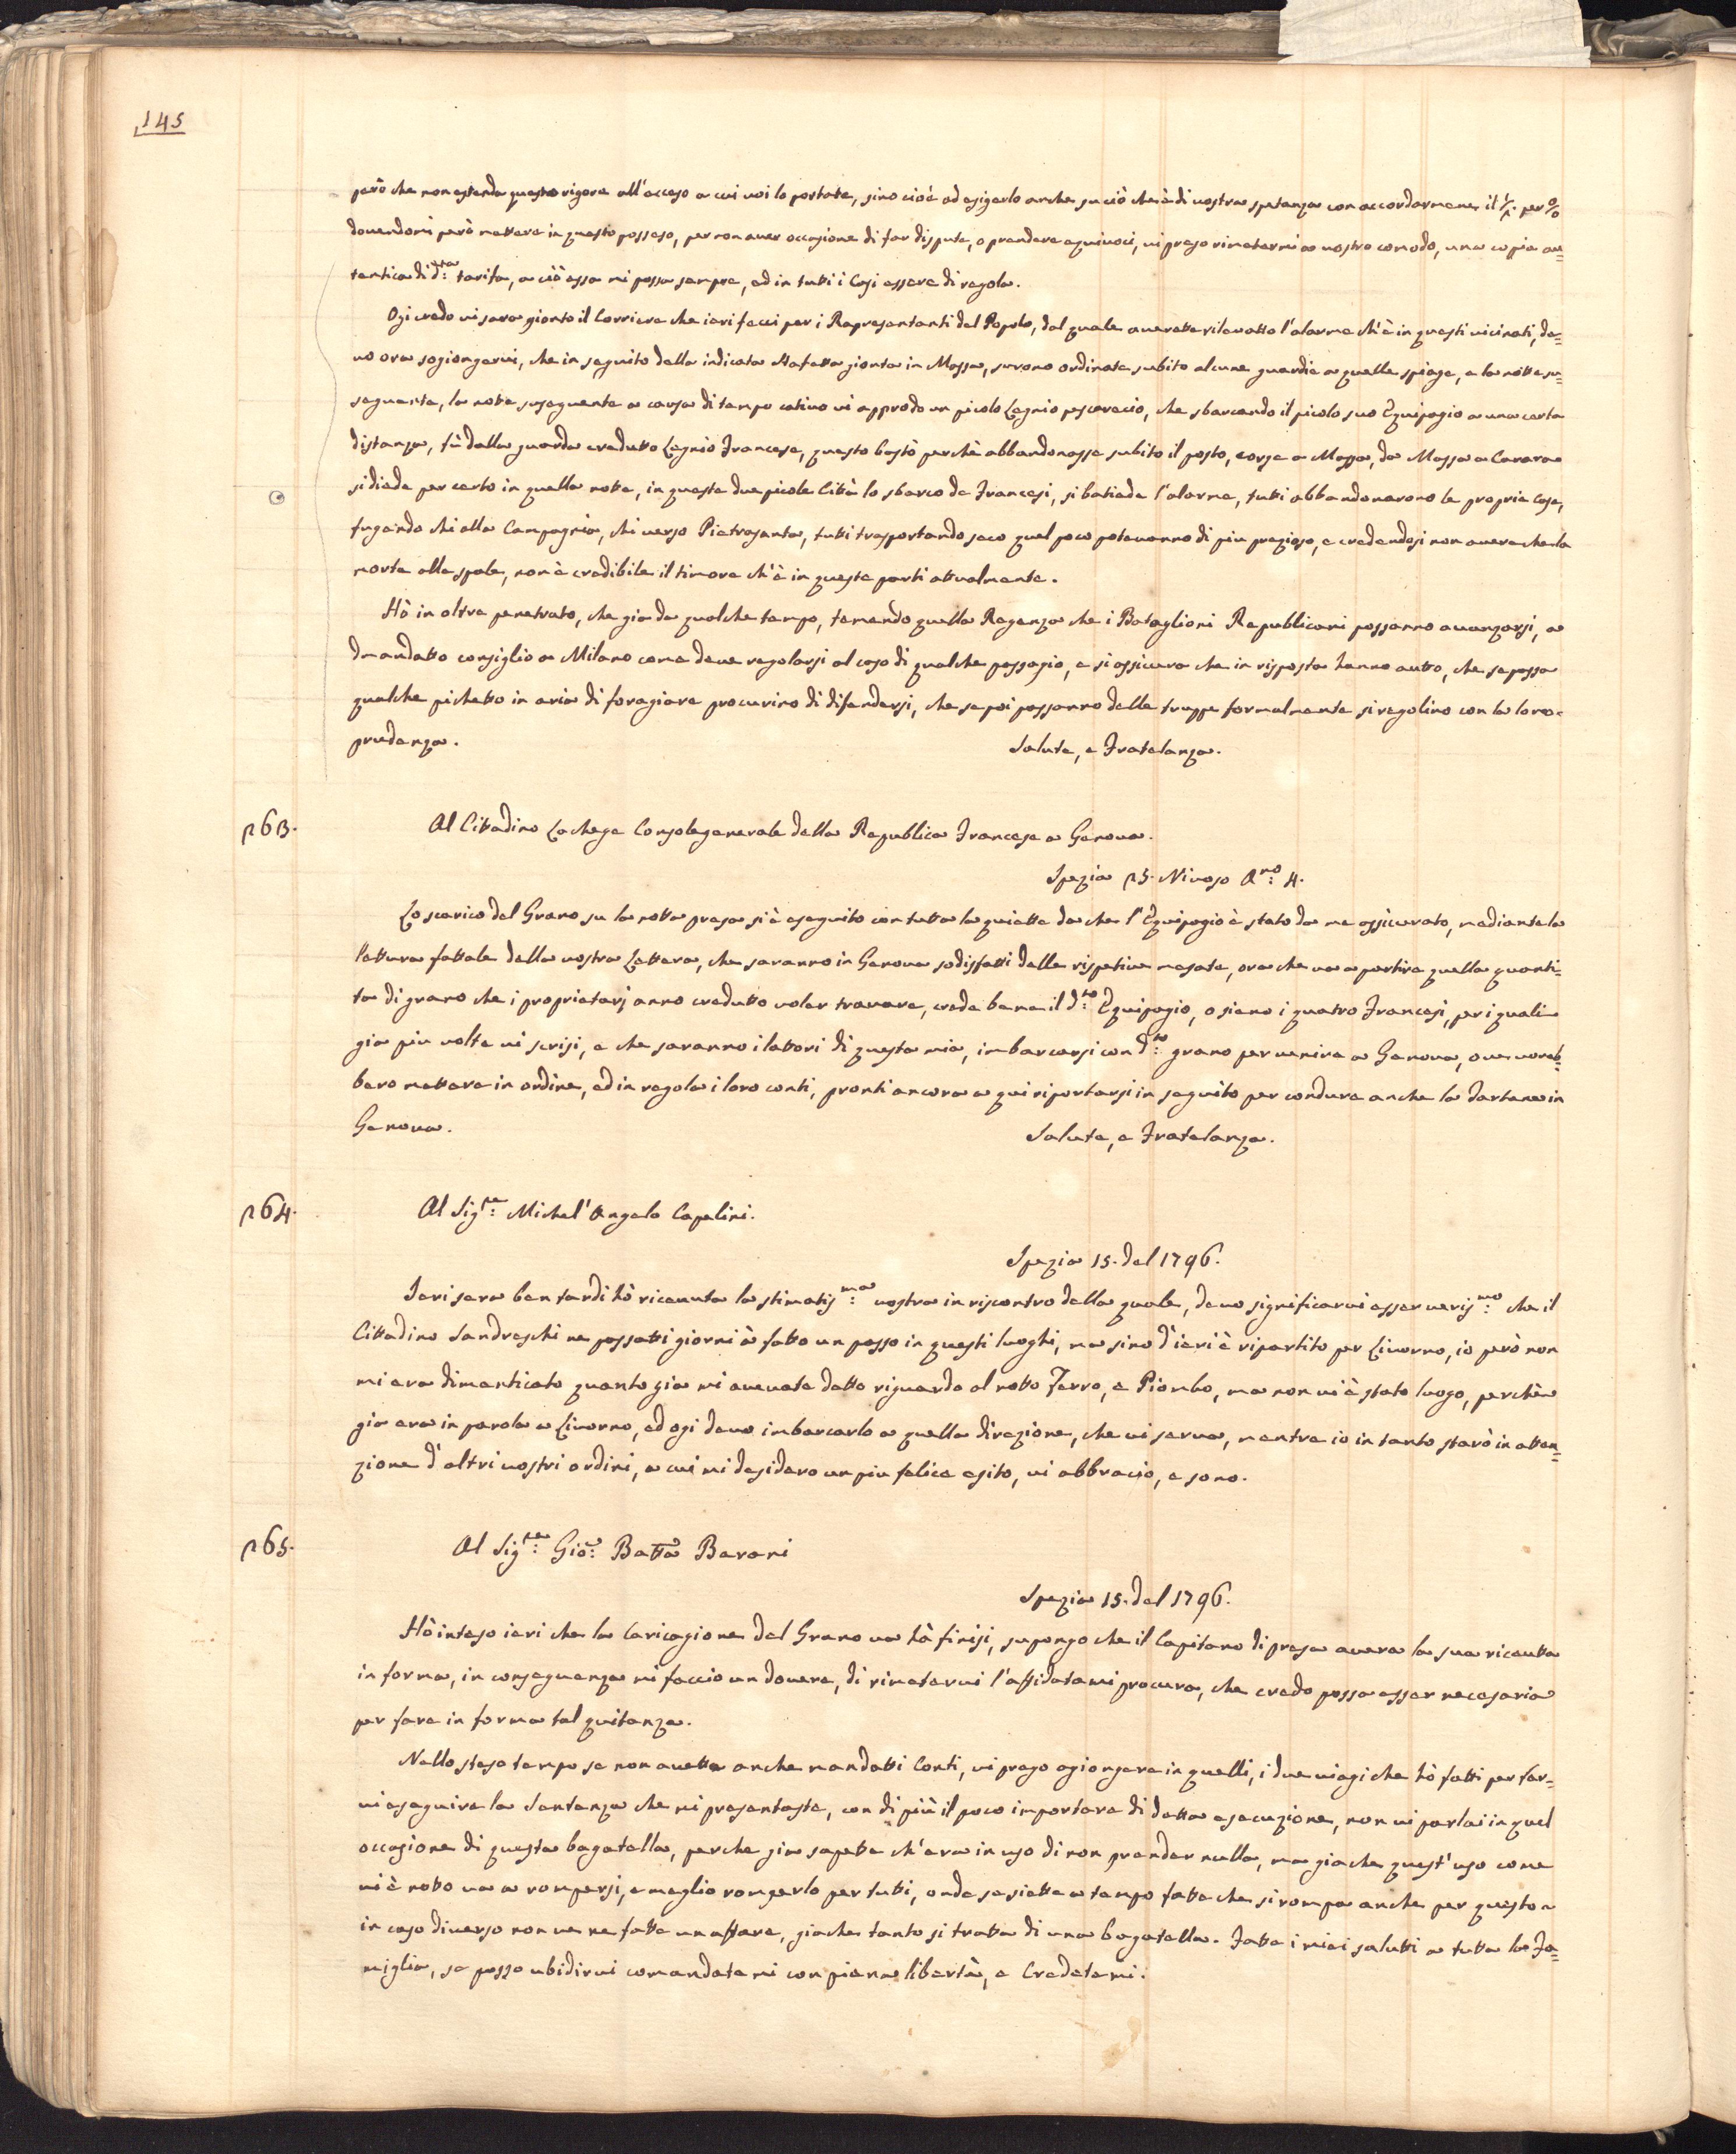 145
però che non estenda questo rigore all'acceso a cui voi lo portate, sino cioè ad esigerlo anche su ciò che è di vostra spetanza con accordarmene il ½ per %
dovendomi però mettere in questo posseso, per non aver occasione di far dispute, o prendere equivoci, vi prego rimetermi a vostro comodo, una copia au=
tentica di d:ta tarifa, a ciò essa mi possa sempre, ed in tutti i Casi essere di regola.
Ogi credo vi sara gionto il Corriere che ieri feci per i Rapresentanti del Popolo, dal quale averette rilevatto l'alarme ch'è in questi vicinati, de=
vo ora sogiongervi, che in seguito della indicata stafetta gionta in Massa, furono ordinate subito alcune guardie a quelle spiage, e la notte su=
seguente, la notte suseguente a causa di tempo cativo vi approdo un picolo Legnio pescarecio, che sbarcando il picolo suo Equipagio a una certa
distanza, fù dalla guarda credutto Legnio Francese, questo bastò perchè abbandonasse subito il posto, corse a Massa, da Massa a Carara
si diede per certo in quella notte, in queste due picole Città lo sbarco de Francesi, si batiede l'alarme, tutti abbandonarono le proprie Case,
fugendo chi alla Campagnia, chi verso Pietrasanta, tutti trasportando seco quel poco potevanno di piu prezioso, e credendosi non avere che la
morte alle spale, non è credibile il timore ch'è in queste parti attualmente.
Hò in oltre penetrato, che gia da qualche tempo, temendo quella Regenza che i Bataglioni Republicani possanno avanzarsi, a
dmandatto consiglio a Milano come deve regolarsi al caso di qualche passagio, e si assicura che in risposta hanno autto, che se passa
qualche pichetto in aria di foragiare procurino di difendersi, che se poi passanno delle truppe formalmente si regolino con la loro
prudenza. Salute, e Fratelanza.
263. Al Cittadino La Chege Consolegenerale della Republica Francese a Genova.
Spezia 25. Nivoso A:no 4.
Lo scarico del Grano su la notta presa si è eseguito con tutta la quiette da che l'Equipagio è stato da me assicurato, mediante la
lettura fattale della vostra Lettera, che saranno in Genova sodisfatti delle rispetive mesate, ora che va a partire quella quanti=
ta di grano che i proprietarj anno credutto voler travare, crede bene il d:to Equipagio, o siano i quatro Francesi, per i quali
gia piu volte vi scrisi, e che saranno i latori di questa mia, imbarcarsi con d:to grano per venire a Genova, ove voreb=
bero mettere in ordine, ed in regola i loro conti, pronti ancora a qui riportarsi in seguito per condure anche la Tartana in
Genova. Salute, e Fratelanza.
264. Al Sig:re Michel'Angelo Capelini.
Spezia 15. del 1796.
Ieri sera ben tardi hò ricevuta la stimatis:ma vostra in riscontro della quale, devo significarvi esser veris:mo che il
Cittadino Sandreschi ne passatti giorni à fatto un passo in questi luoghi, ma sino d'ieri è ripartito per Livorno, io però non
mi era dimenticato quanto gia mi avevate detto riguardo al notto Ferro, e Piombo, ma non vi è stato luogo, perchè
gia era in parola a Livorno, ed ogi deve imbarcarlo a quella direzione, che vi serva, mentre io in tanto starò in atten=
zione d'altri vostri ordini, a cui mi desidero un piu felice esito, vi abbracio, e sono.
265. Al Sig:re Gio: Batta Baroni
Spezia 15. del 1796.
Hò inteso ieri che la Caricagione del Grano va hà finisi, supongo che il Capitano di presa avera la sua ricevtta
in forma, in conseguenza mi faccio un dovere, di rimetervi l'affidatami procura, che credo possa esser necesaria
per fare in forma tal quitanza.
Nello steso tempo se non avette anche mandatti Conti, vi prego agiongere in quelli, i due viagi che hò fatti per far=
vi eseguire la Santanza che mi presentaste, con di più il poco importare di detta esecuzione, non vi parlai in quel
occasione di questa bagatella, perche gia sapette ch'era in uso di non prender nulla, ma giache quest'uso come
vi è notto va a rompersi, e meglio romperlo per tutti, onde se siette a tempo fatte che si rompa anche per questo
in caso diverso non ve ne fatte un affare, giache tanto si tratta di una bagatella. Fatte i miei salutti a tutta la Fa=
miglia, se posso ubidirvi comandatemi con piena libertà, e Credetemi.